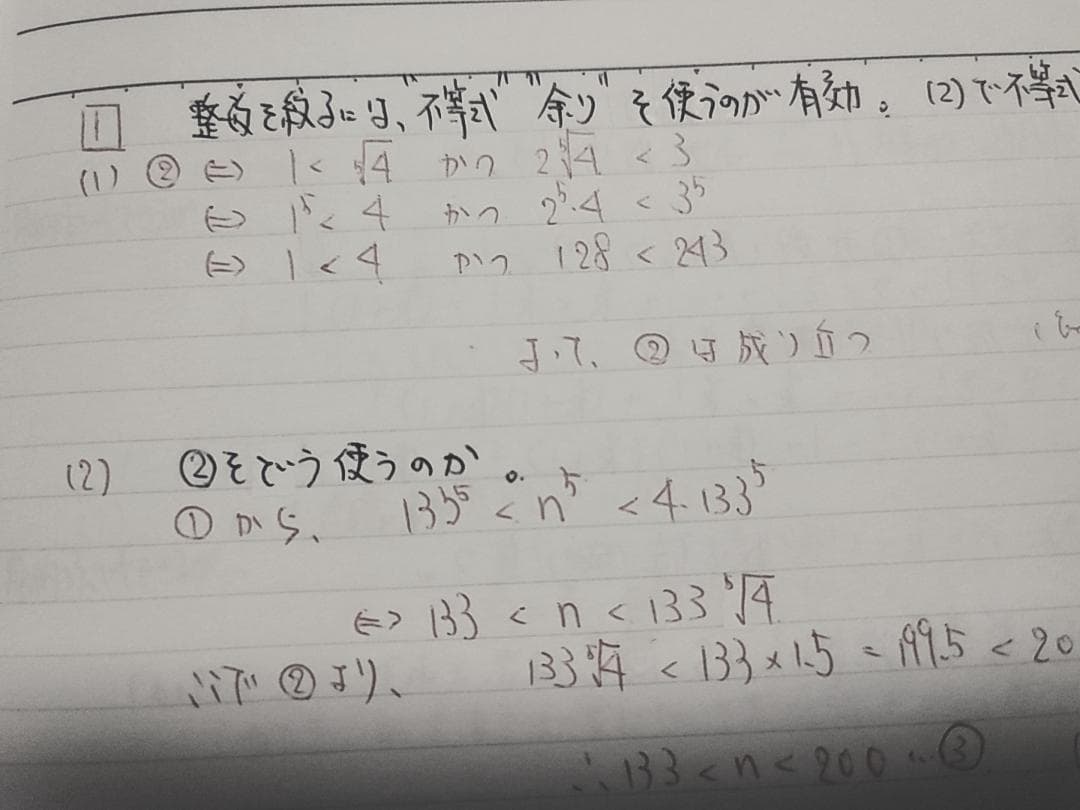 1 整数を絞るには、"不等式" "余り" を使うのが有効。(2)で不等式
(1) ② ⇔ 1 < ⁵√4 かつ 2⁵√4 < 3
⇔ 1⁵ < 4 かつ 2⁵・4 < 3⁵
⇔ 1 < 4 かつ 128 < 243
よって、②は成り立つ
(2) ②をどういう使うのか。
①から、 133⁵ < n⁵ < 4・133⁵
⇔ 133 < n < 133 ⁵√4
ここで②より、 133⁵√4 < 133×1.5 = 199.5 < 20
∴ 133 < n < 200 …③